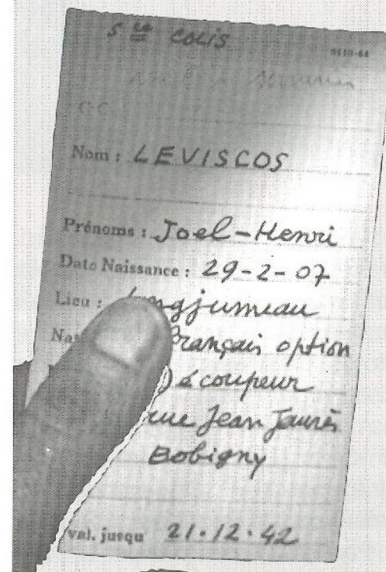 5 COLIS
Nom : LEVISCOS
Prénoms : Joel-Henri
Date Naissance : 29-2-07
Lieu : ngjumeau
Na rançais option
écoupeur
rue Jean Jaurès
Bobigny
val. jusqu 21.12.42